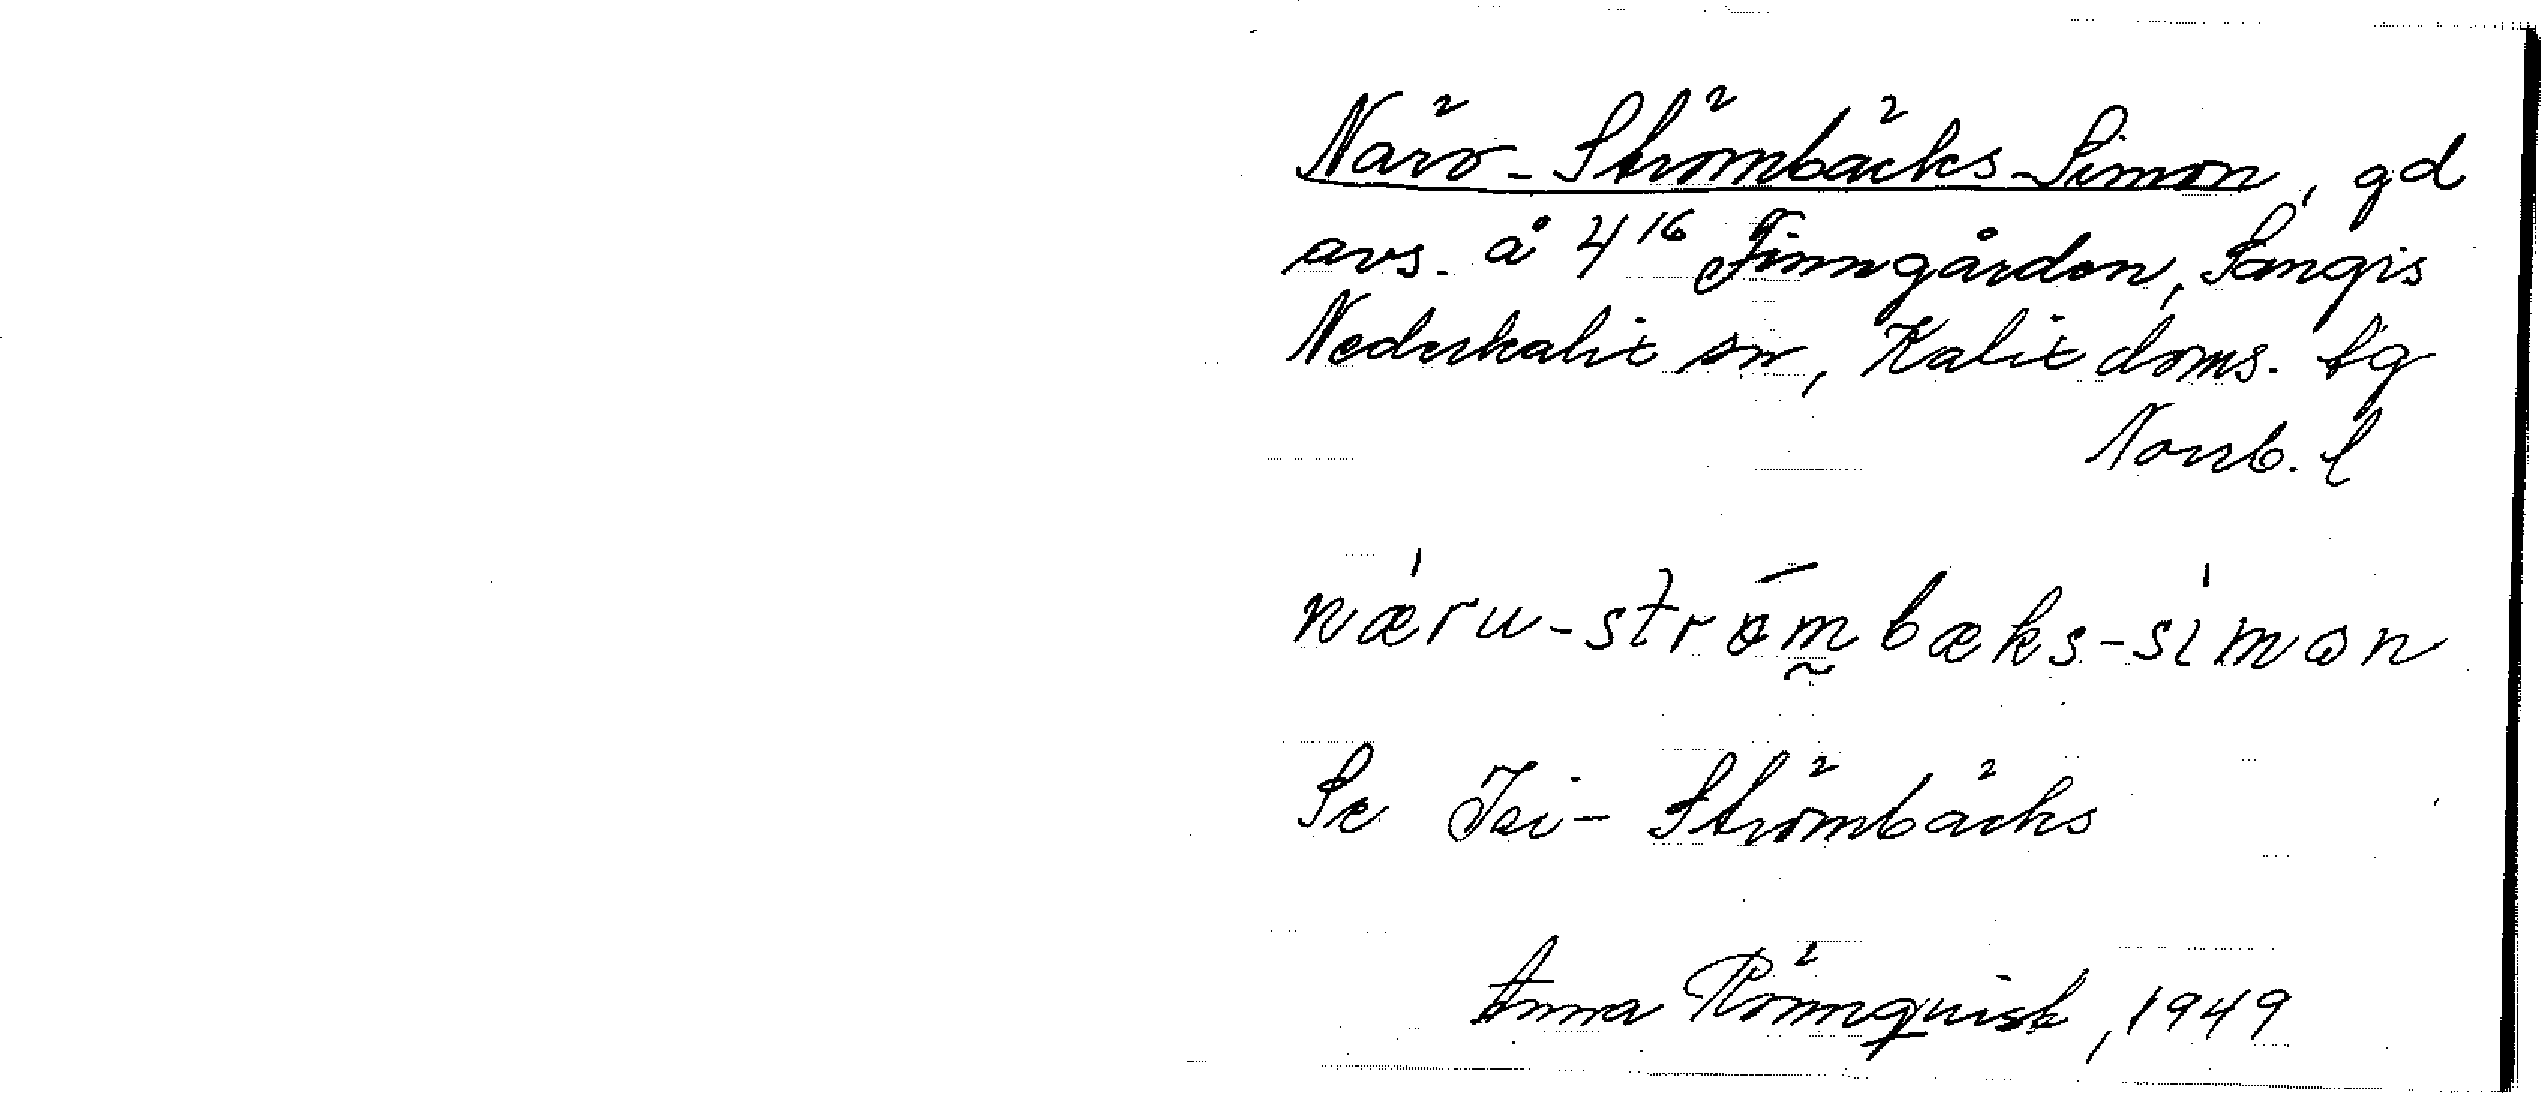 Närv-Strömbäcks-Simon, gd
avs. å 4¹⁶ Finngården, Sangis
Nederkalix sn, Kalix doms. tg
Norrb. l
næru-strømbæks-simon
Se Isi-Strömbäcks
Anna Rönnquist, 1949